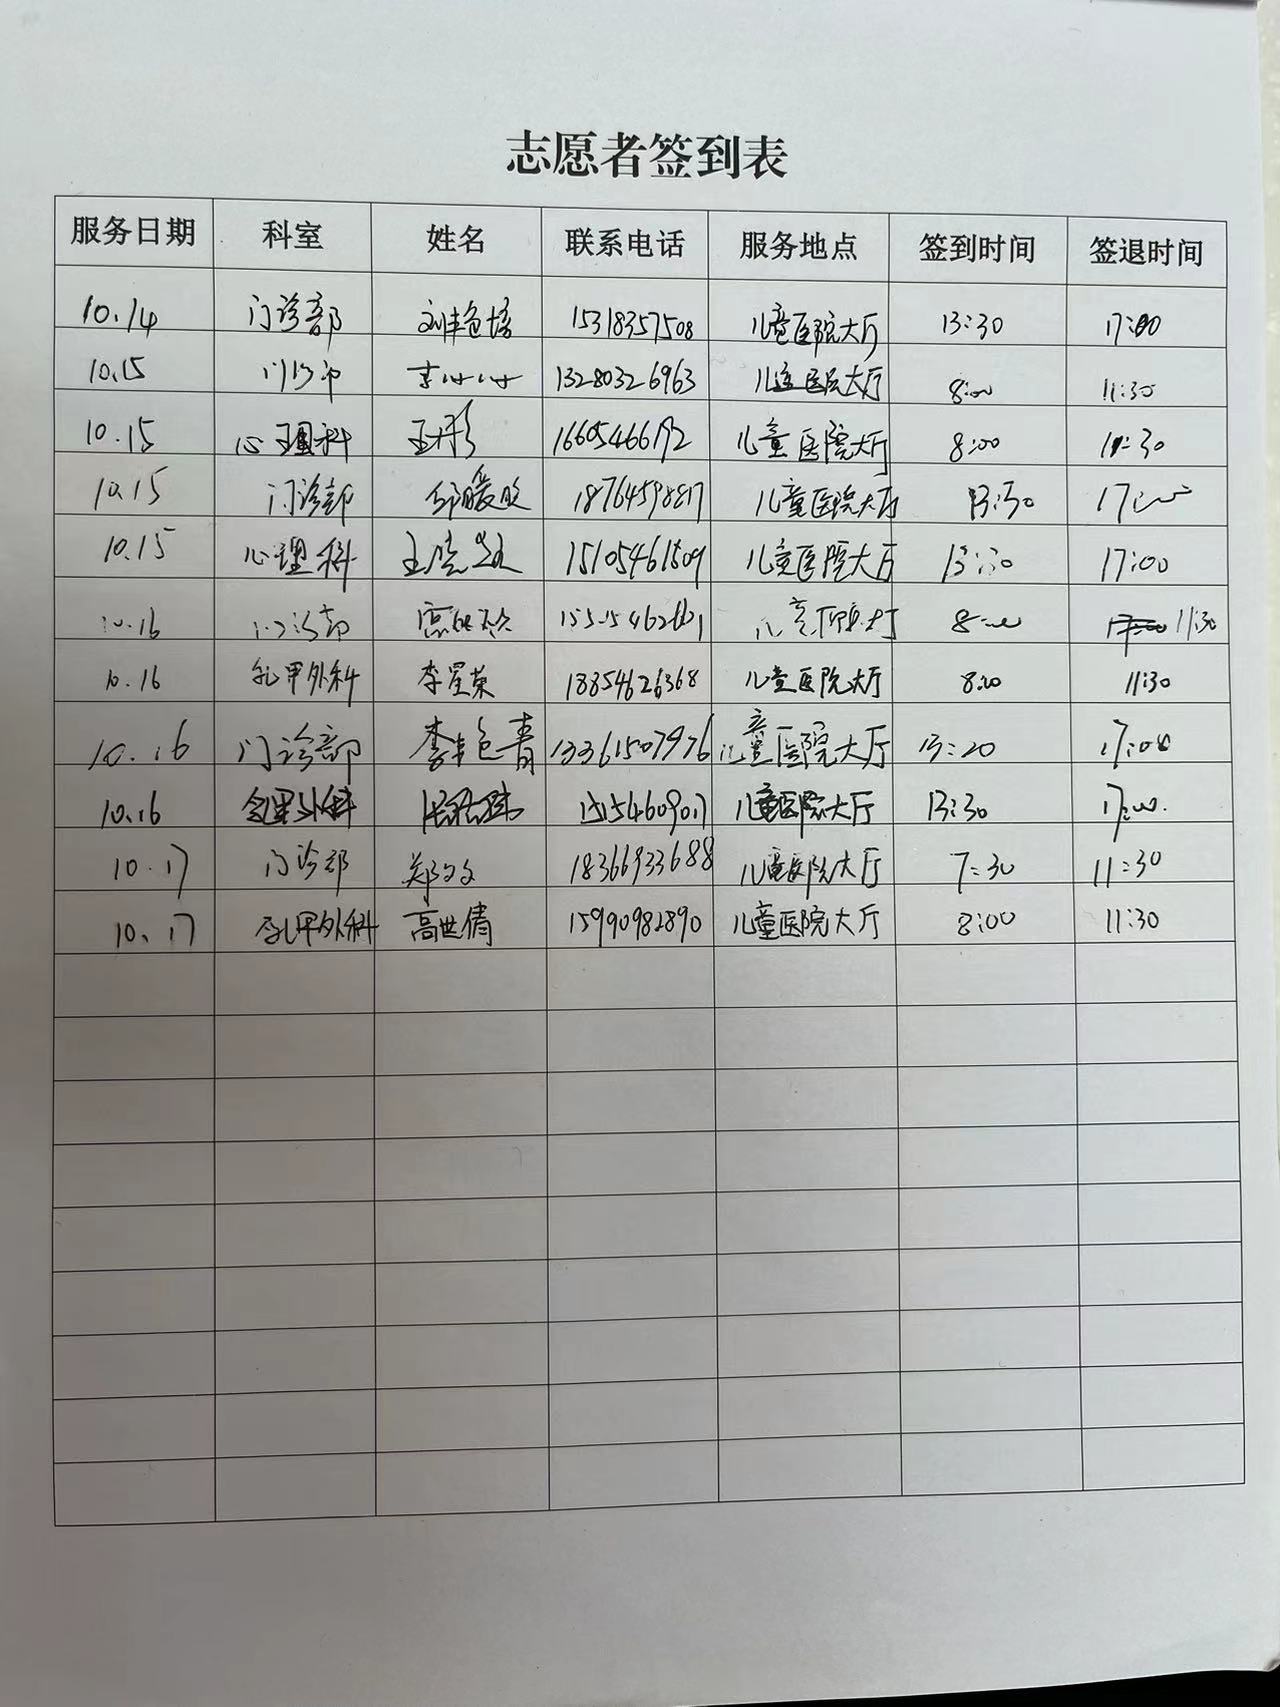 志愿者签到表
服务日期 科室 姓名 联系电话 服务地点 签到时间 签退时间
10.14 门诊部 刘艳培 15318357508 儿童医院大厅 13:30 17:00
10.15 门诊部 李 13280326963 儿童医院大厅 8:00 11:30
10.15 心理科 王彤 16605466192 儿童医院大厅 8:00 11:30
10.15 门诊部 邱媛 18764598817 儿童医院大厅 13:30 17:00
10.15 心理科 王 15105461509 儿童医院大厅 13:30 17:00
10.16 门诊部 儿童医院大厅 8:00 11:30
10.16 乳甲外科 李星荣 18854626368 儿童医院大厅 8:00 11:30
10.16 门诊部 李艳青 13361507976 儿童医院大厅 13:20 17:00
10.16 乳甲外科 15154609017 儿童医院大厅 13:30 17:00.
10.17 门诊部 郑文文 18366933688 儿童医院大厅 7:30 11:30
10.17 乳甲外科 高世倩 15990982890 儿童医院大厅 8:00 11:30